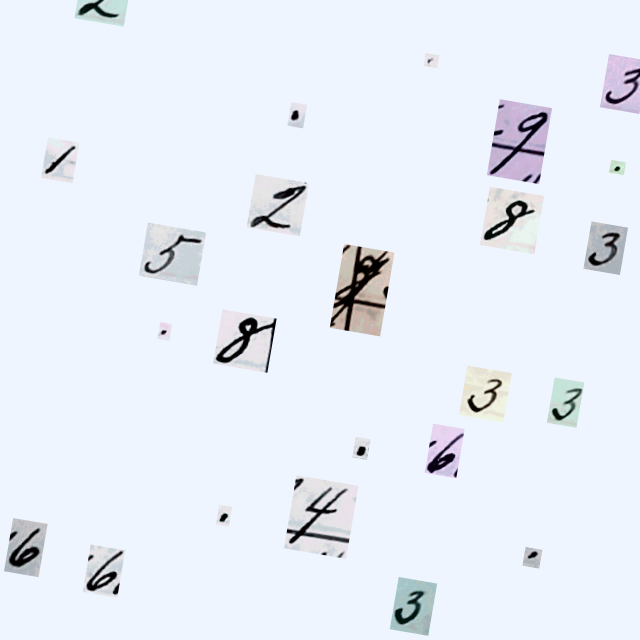 2 . 3
. 9 .
1 2 8 3
5
. 8 3 3
. 6
. 4 .
6 6 3